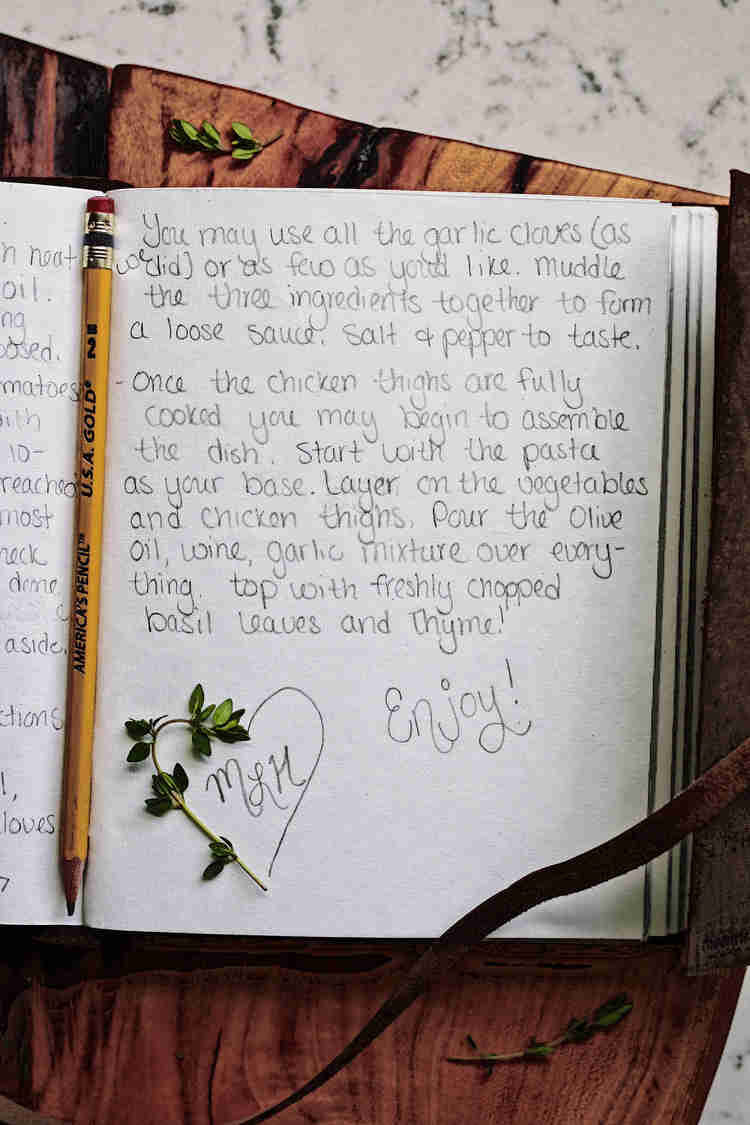 n heat
oil.
ng
osed.
matoes
ith
10-
reached
most
heck
done
aside.
ctions
l,
loves
AMERICA'S PENCIL™ U.S.A. GOLD® 2
You may use all the garlic cloves (as
we did) or as few as you'd like. muddle
the three ingredients together to form
a loose sauce. Salt & pepper to taste.
- Once the chicken thighs are fully
cooked you may begin to assemble
the dish. Start with the pasta
as your base. Layer on the vegetables
and chicken thighs. Pour the Olive
oil, wine, garlic mixture over every-
thing. top with freshly chopped
basil leaves and Thyme!
Enjoy!
MLH